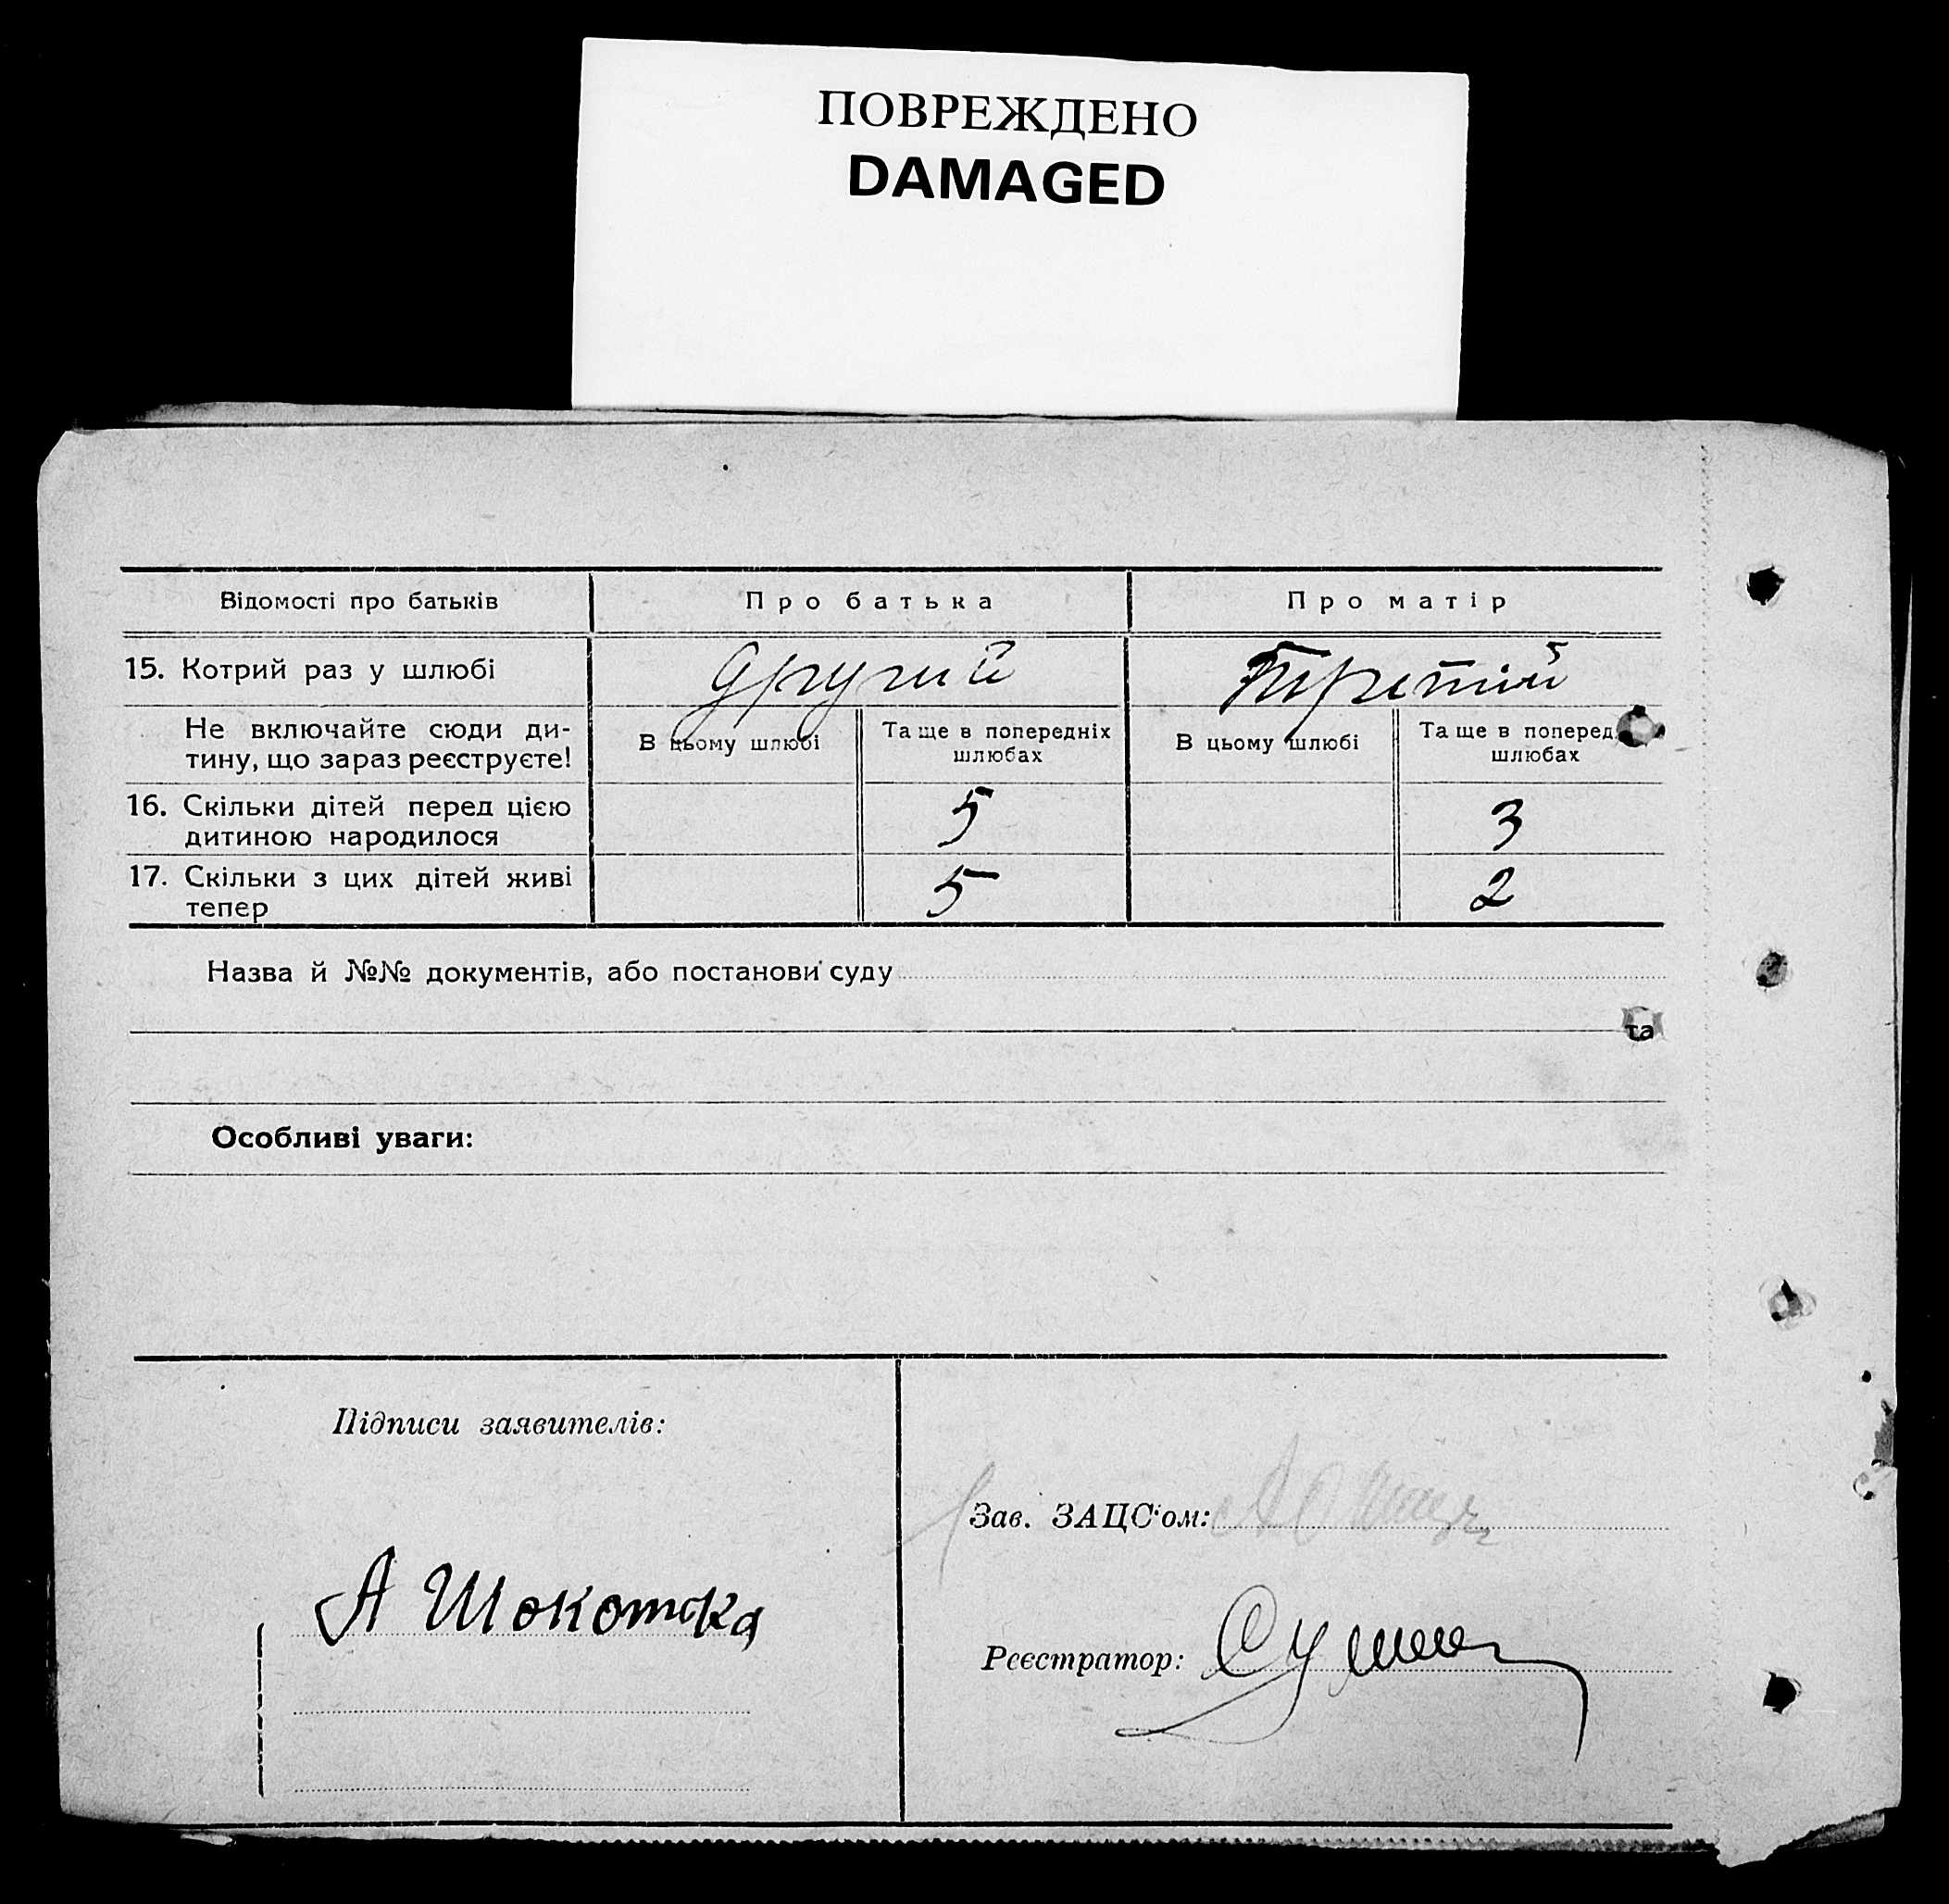 ПОВРЕЖДЕНО
DAMAGED
Відомості про батьків
Про батька
Про матір
15. Котрий раз у шлюбі
другий
Третій
Не включайте сюди ди-
тину, що зараз реєструєте!
В цьому шлюбі
Та ще в попередніх
шлюбах
В цьому шлюбі
Та ще в поперед
шлюбах
16. Скільки дітей перед цією
дитиною народилося
5
3
17. Скільки з цих дітей живі
тепер
5
2
Назва й №№ документів, або постанови суду
та
Особливі уваги:
Підписи заявителів:
Зав. ЗАЦС'ом:
А Шокотка
Реєстратор: